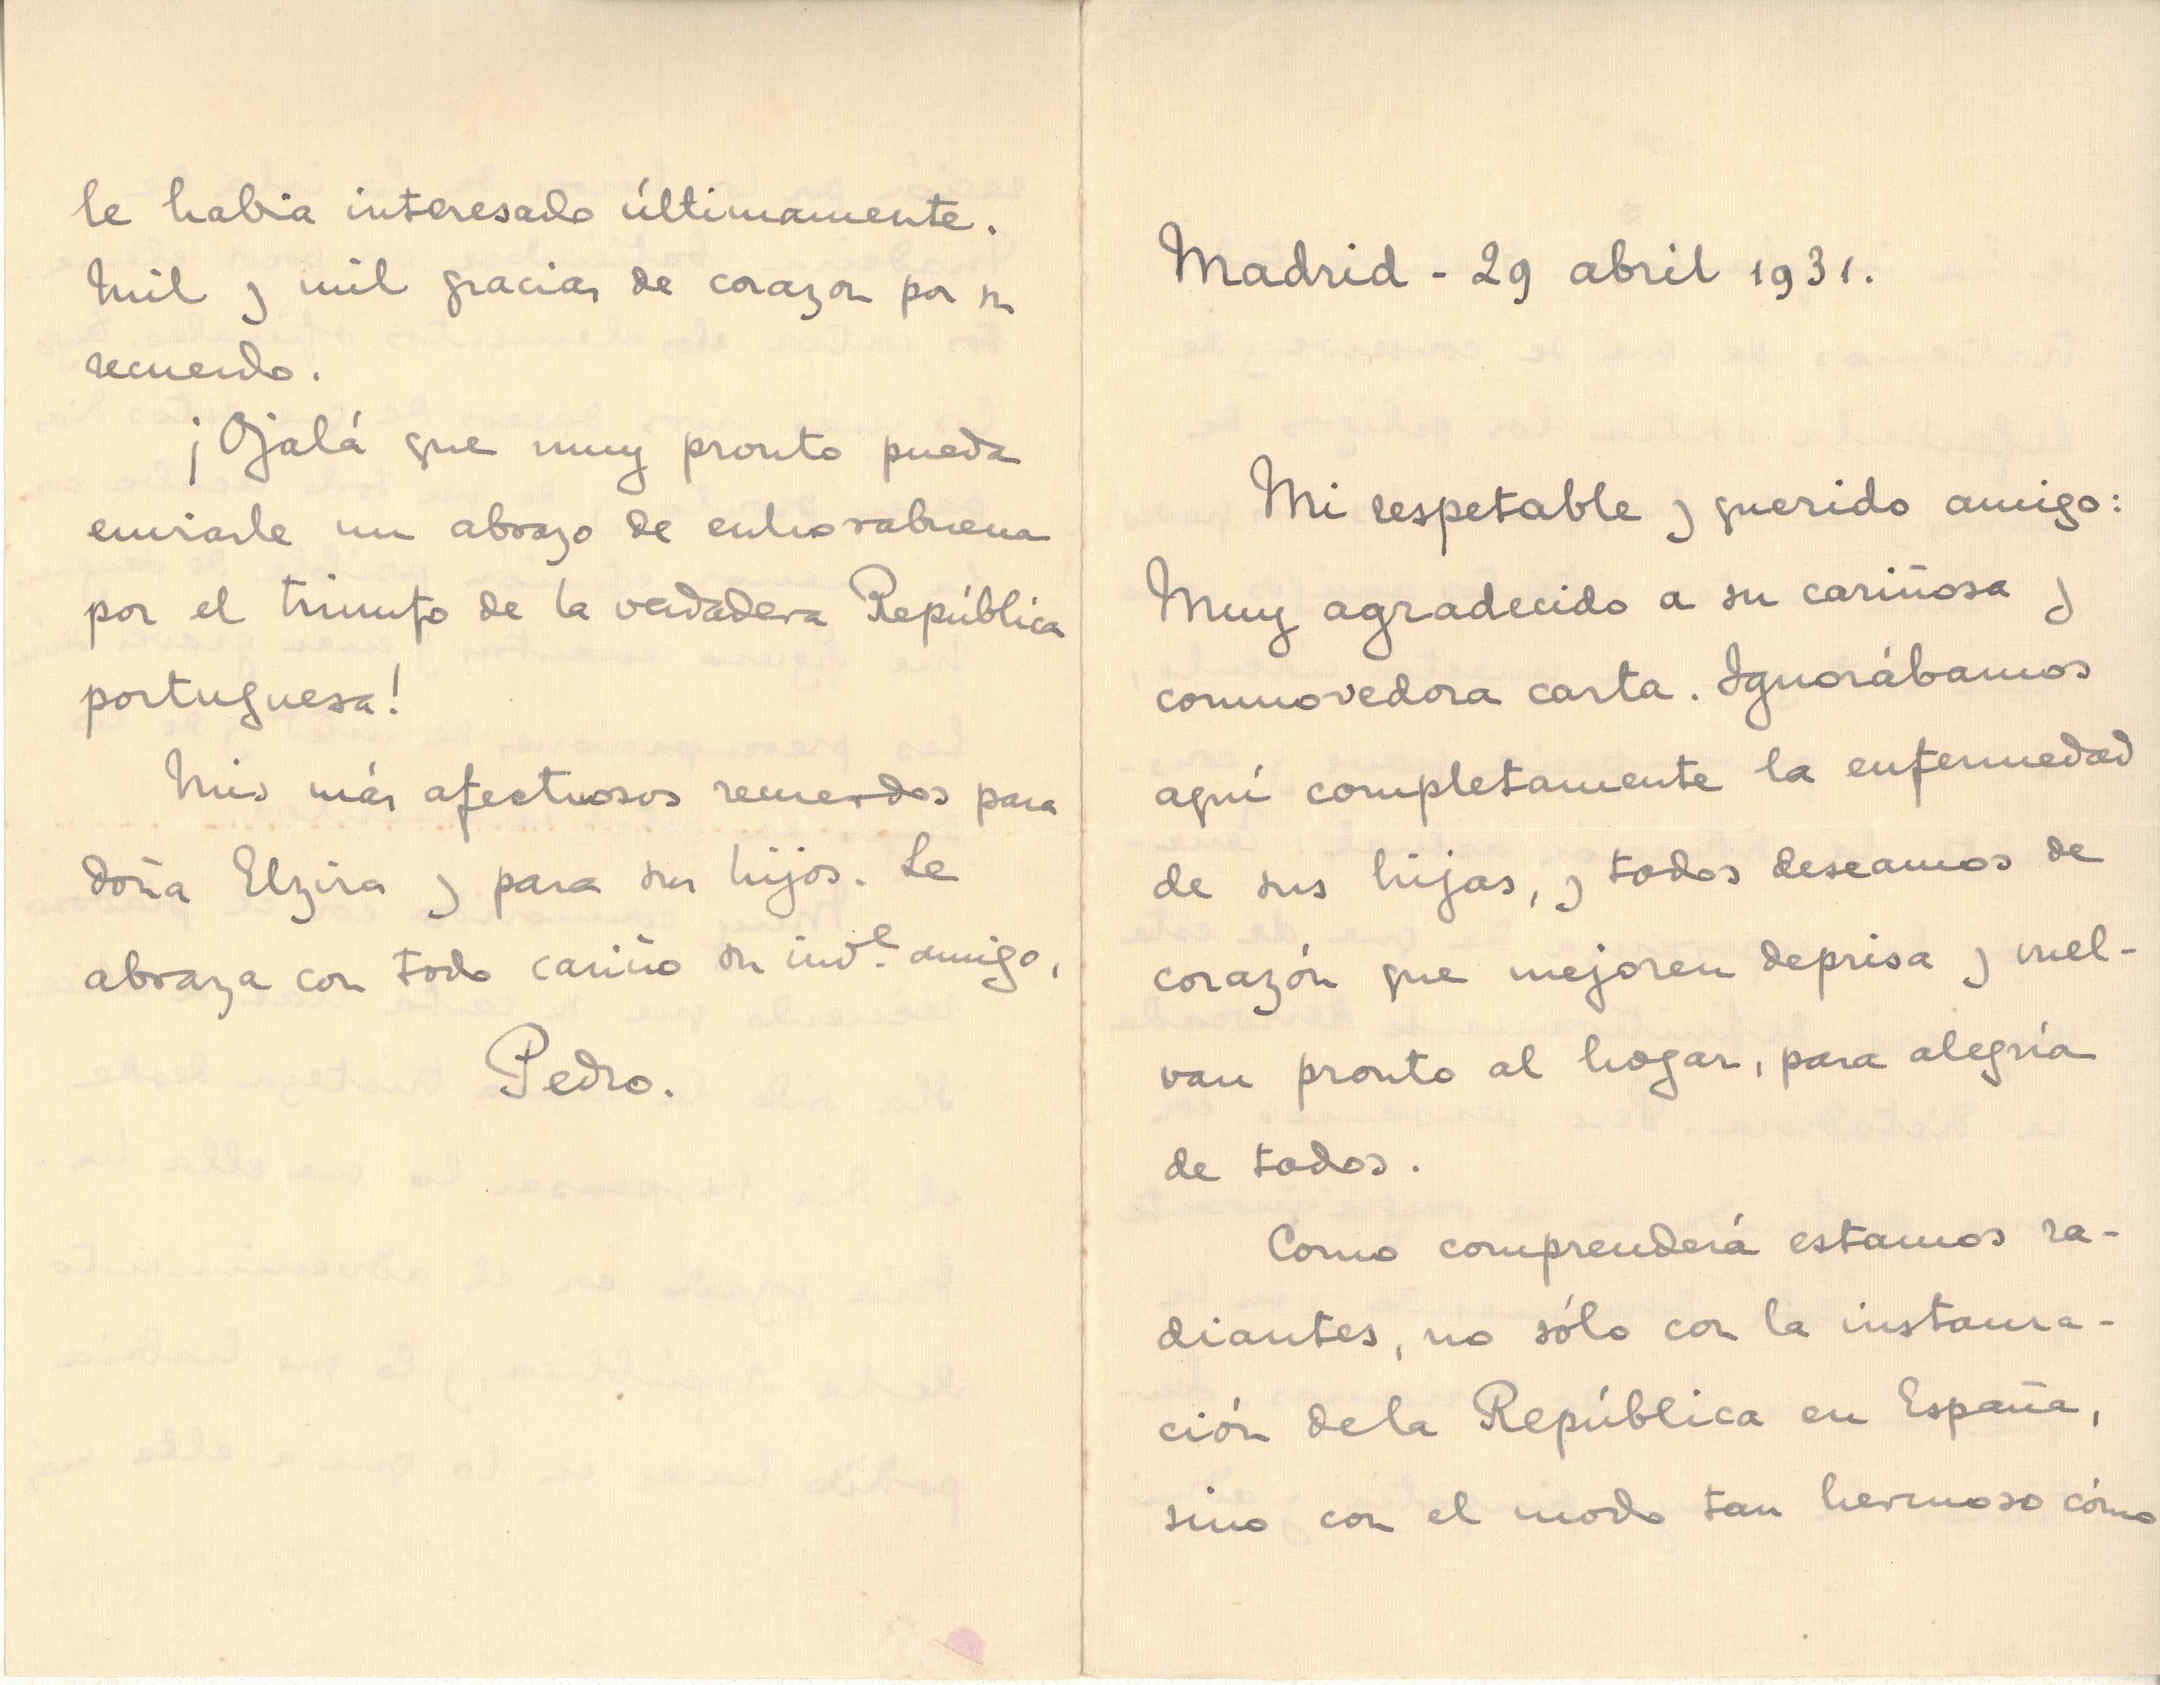 Madrid - 29 abril 1931.
Mi respetable y querido amigo:
Muy agradecido a su cariñosa y
conmovedora carta. Ignorábamos
aquí completamente la enfermedad
de sus hijas, y todos deseamos de
corazón que mejoren deprisa y vuel-
van pronto al hogar, para alegría
de todos.
Como comprenderá estamos ra-
diantes, no sólo con la instaura-
ción de la República en España,
sino con el modo tan hermoso cómo
le había interesado últimamente.
Mil y mil gracias de corazon por su
recuerdo.
¡Ojalá que muy pronto pueda
enviarle un abrazo de enhorabuena
por el triunfo de la verdadera República
portuguesa!
Mis más afectuosos recuerdos para
doña Elzira y para sus hijos. Le
abraza con todo cariño su invᵉ. amigo,
Pedro.